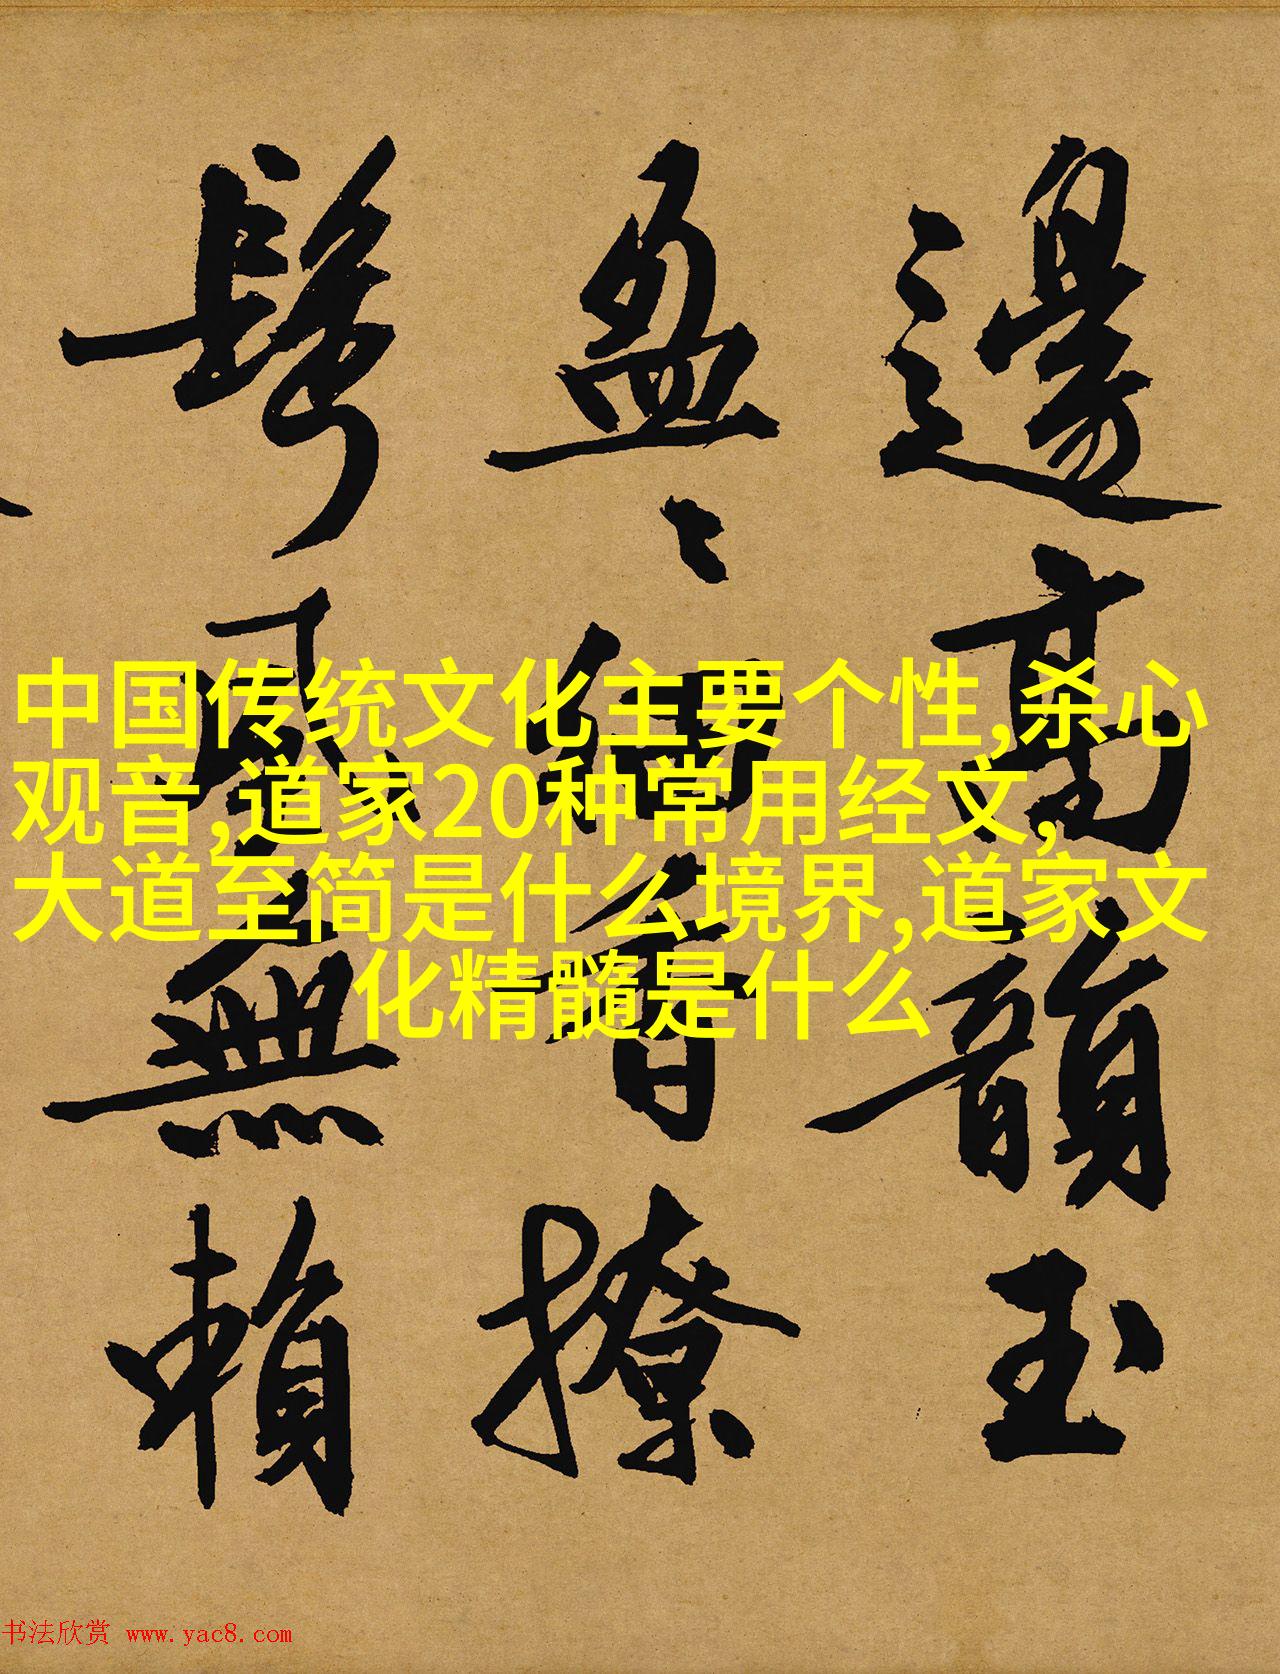 邊高韻玉
盈〻細香撩
鬢風無賴
中国传统文化主要个性,杀心
观音,道家20种常用经文,
大道至简是什么境界,道家文
化精髓是什么
书法欣赏 www.yac8.com